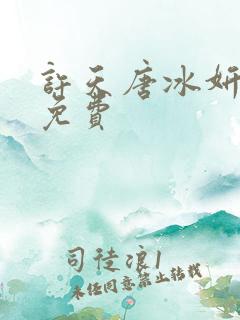 許天唐冰妍
免費
司徒浪1
未经同意禁止转载